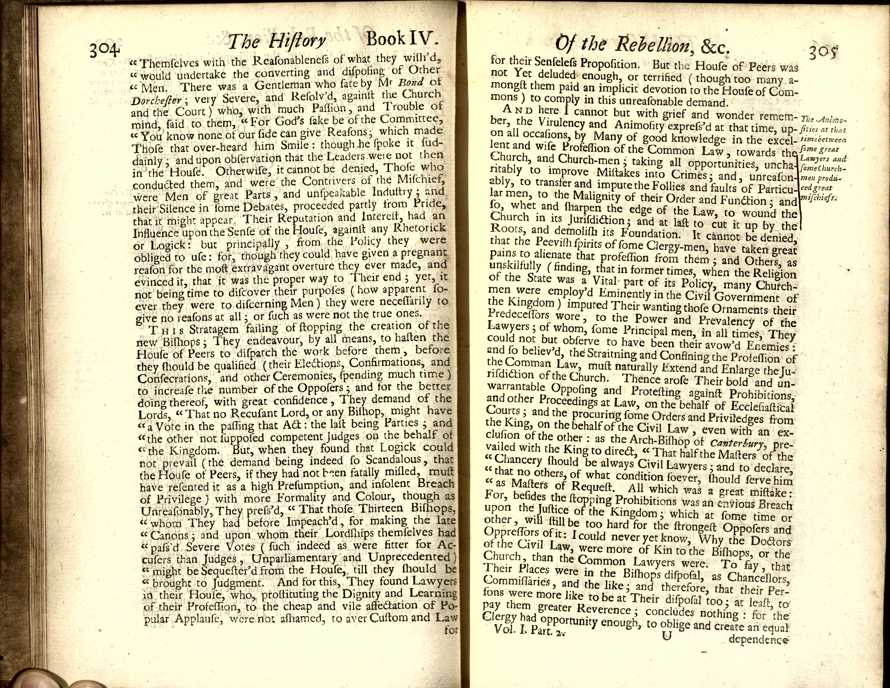 304 The Hiſtory Book IV.
“Themſelves with the Reaſonableneſs of what they wiſh'd,
“would undertake the converting and diſpoſing of Other
“Men. There was a Gentleman who ſate by Mr Bond of
Dorcheſter; very Severe, and Reſolv'd, againſt the Church
and the Court) who, with much Paſſion, and Trouble of
mind, ſaid to them, “For God's ſake be of the Committee,
“You know none of our ſide can give Reaſons; which made
Thoſe that over-heard him Smile: though he ſpoke it ſud-
dainly; and upon obſervation that the Leaders were not then
in the Houſe. Otherwiſe, it cannot be denied, Thoſe who
conducted them, and were the Contrivers of the Miſchief,
were Men of great Parts, and unſpeakable Induſtry; and
their Silence in ſome Debates, proceeded partly from Pride,
that it might appear Their Reputation and Intereſt, had an
Influence upon the Senſe of the Houſe, againſt any Rhetorick
or Logick: but principally, from the Policy they were
obliged to uſe: for, though they could have given a pregnant
reaſon for the moſt extravagant overture they ever made, and
evinced it, that it was the proper way to Their end; yet, it
not being time to diſcover their purpoſes (how apparent ſo-
ever they were to diſcerning Men) they were neceſſarily to
give no reaſons at all; or ſuch as were not the true ones.
THIS Stratagem failing of ſtopping the creation of the
new Biſhops; They endeavour, by all means, to haſten the
Houſe of Peers to diſpatch the work before them, before
they ſhould be qualified (their Elections, Confirmations, and
Conſecrations, and other Ceremonies, ſpending much time)
to increaſe the number of the Oppoſers; and for the better
doing thereof, with great confidence, They demand of the
Lords, “That no Recuſant Lord, or any Biſhop, might have
“a Vote in the paſſing that Act: the laſt being Parties; and
“the other not ſuppoſed competent Judges on the behalf of
“the Kingdom. But, when they found that Logick could
not prevail (the demand being indeed ſo Scandalous, that
the Houſe of Peers, if they had not been fatally miſled, muſt
have reſented it as a high Preſumption, and inſolent Breach
of Privilege) with more Formality and Colour, though as
Unreaſonably, They preſs'd, “That thoſe Thirteen Biſhops,
“whom They had before Impeach'd, for making the late
“Canons; and upon whom their Lordſhips themſelves had
“paſs'd Severe Votes (ſuch indeed as were fitter for Ac-
cuſers than Judges, Unparliamentary and Unprecedented)
“might be Sequeſter'd from the Houſe, till they ſhould be
“brought to Judgment. And for this, They found Lawyers
in their Houſe, who, proſtituting the Dignity and Learning
of their Profeſſion, to the cheap and vile affectation of Po-
pular Applauſe, were not aſhamed, to aver Cuſtom and Law
for
Of the Rebellion, &c. 305
for their Senſeleſs Propoſition. But the Houſe of Peers was
not Yet deluded enough, or terrified (though too many a-
mongſt them paid an implicit devotion to the Houſe of Com-
mons) to comply in this unreaſonable demand.
AND here I cannot but with grief and wonder remem-
ber, the Virulency and Animoſity expreſs'd at that time, up-
on all occaſions, by Many of good knowledge in the excel-
lent and wiſe Profeſſion of the Common Law, towards the
Church, and Church-men; taking all opportunities, uncha-
ritably to improve Miſtakes into Crimes; and, unreaſon-
ably, to transfer and impute the Follies and faults of Particu-
lar men, to the Malignity of their Order and Function; and
ſo, whet and ſharpen the edge of the Law, to wound the
Church in its Juriſdiction; and at laſt to cut it up by the
Roots, and demoliſh its Foundation. It cannot be denied,
that the Peeviſh ſpirits of ſome Clergy-men, have taken great
pains to alienate that profeſſion from them; and Others, as
unskilfully (finding, that in former times, when the Religion
of the State was a Vital part of its Policy, many Church-
men were employ'd Eminently in the Civil Government of
the Kingdom) imputed Their wanting thoſe Ornaments their
Predeceſſors wore, to the Power and Prevalency of the
Lawyers; of whom, ſome Principal men, in all times, They
could not but obſerve to have been their avow'd Enemies:
and ſo believ'd, the Straitning and Confining the Profeſſion of
the Comman Law, muſt naturally Extend and Enlarge the Ju-
riſdiction of the Church. Thence aroſe Their bold and un-
warrantable Oppoſing and Proteſting againſt Prohibitions,
and other Proceedings at Law, on the behalf of Eccleſiaſtical
Courts; and the procuring ſome Orders and Priviledges from
the King, on the behalf of the Civil Law, even with an ex-
cluſion of the other: as the Arch-Biſhop of Canterbury, pre-
vailed with the King to direct, “That half the Maſters of the
“Chancery ſhould be always Civil Lawyers; and to declare,
“that no others, of what condition ſoever, ſhould ſerve him
“as Maſters of Requeſt. All which was a great miſtake:
For, beſides the ſtopping Prohibitions was an envious Breach
upon the Juſtice of the Kingdom; which at ſome time or
other, will ſtill be too hard for the ſtrongeſt Oppoſers and
Oppreſſors of it: I could never yet know, Why the Doctors
of the Civil Law, were more of Kin to the Biſhops, or the
Church, than the Common Lawyers were. To ſay, that
Their Places were in the Biſhops diſpoſal, as Chancellors,
Commiſſaries, and the like; and therefore, that their Per-
ſons were more like to be at Their diſpoſal too; at leaſt, to
pay them greater Reverence; concludes nothing: for the
Clergy had opportunity enough, to oblige and create an equal
Vol. I. Part. 2. U dependence
The Animo-
ſities at that
time between
ſome great
Lawyers and
ſome Church-
men produ-
ced great
miſchiefs.